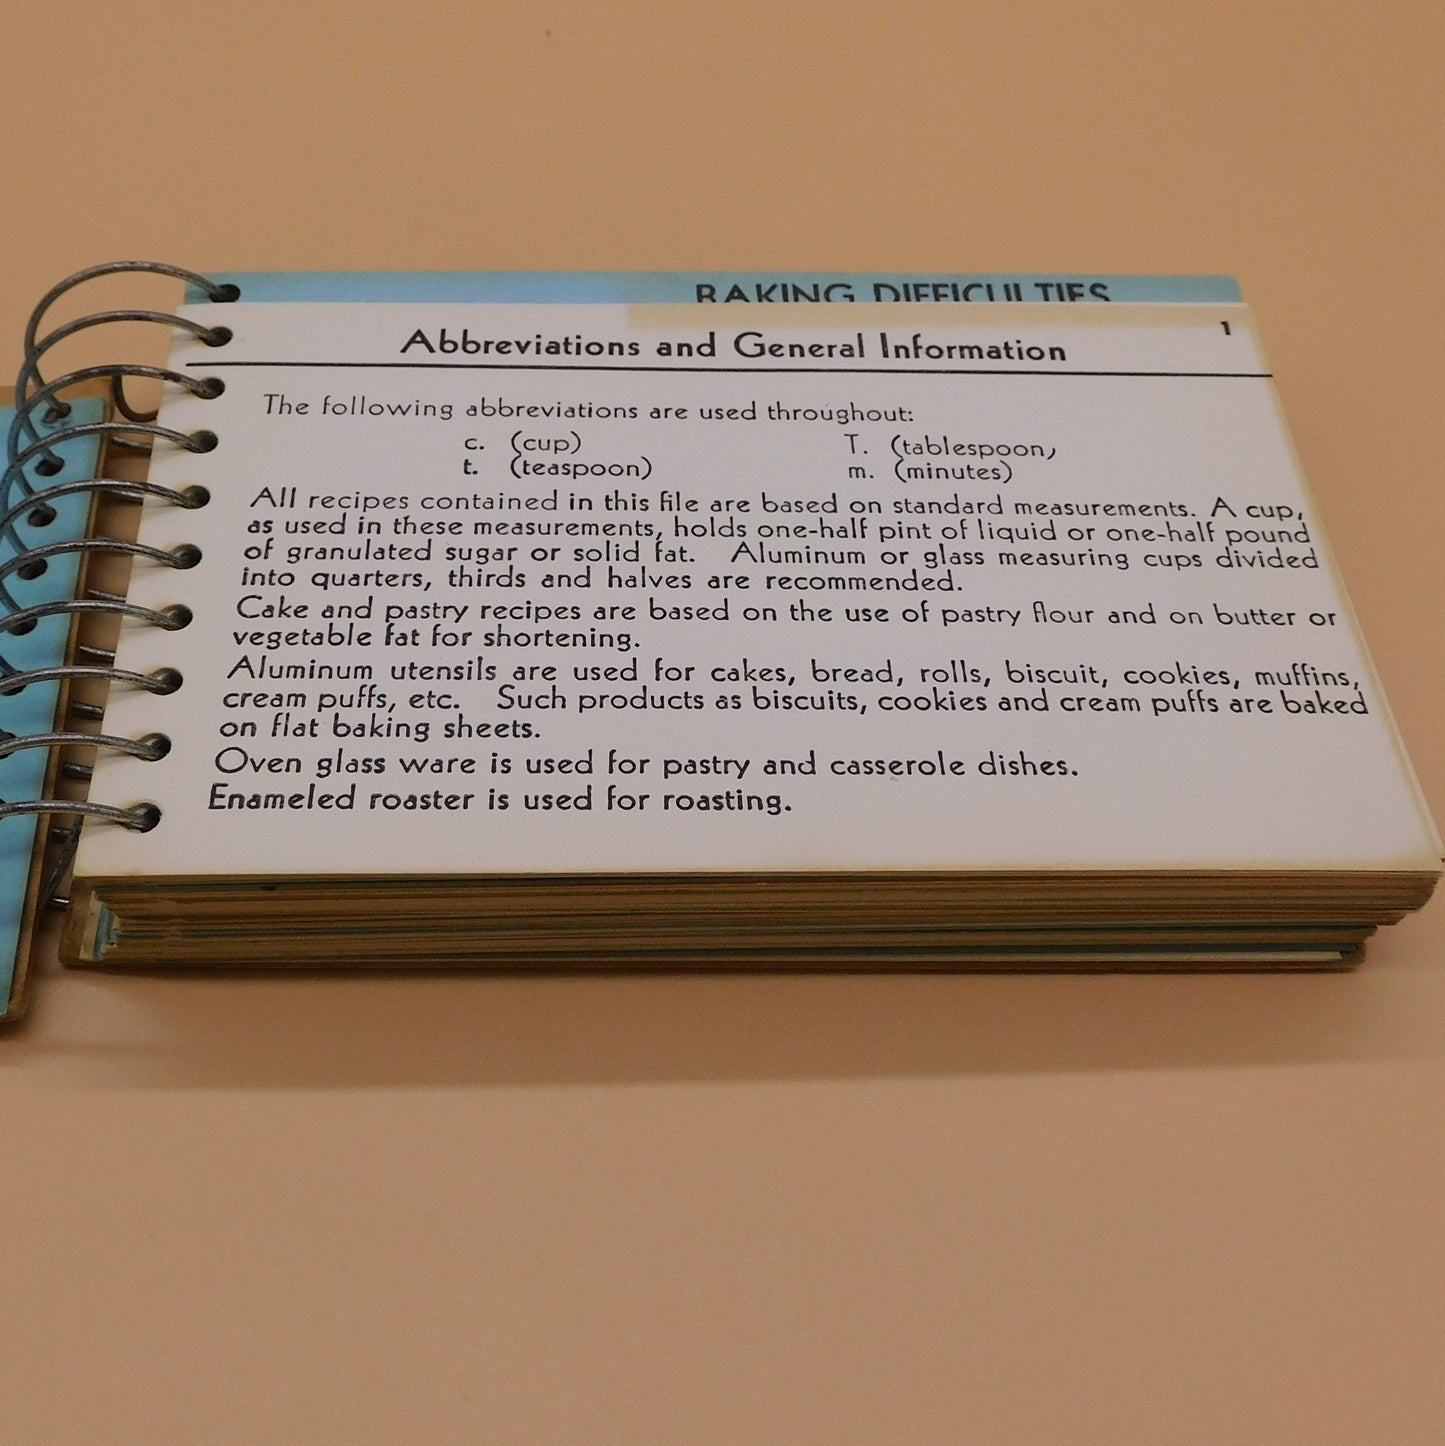 BAKING DIFFICULTIES
1
Abbreviations and General Information
The following abbreviations are used throughout:
c. (cup) T. (tablespoon)
t. (teaspoon) m. (minutes)
All recipes contained in this file are based on standard measurements. A cup,
as used in these measurements, holds one-half pint of liquid or one-half pound
of granulated sugar or solid fat. Aluminum or glass measuring cups divided
into quarters, thirds and halves are recommended.
Cake and pastry recipes are based on the use of pastry flour and on butter or
vegetable fat for shortening.
Aluminum utensils are used for cakes, bread, rolls, biscuit, cookies, muffins,
cream puffs, etc. Such products as biscuits, cookies and cream puffs are baked
on flat baking sheets.
Oven glass ware is used for pastry and casserole dishes.
Enameled roaster is used for roasting.